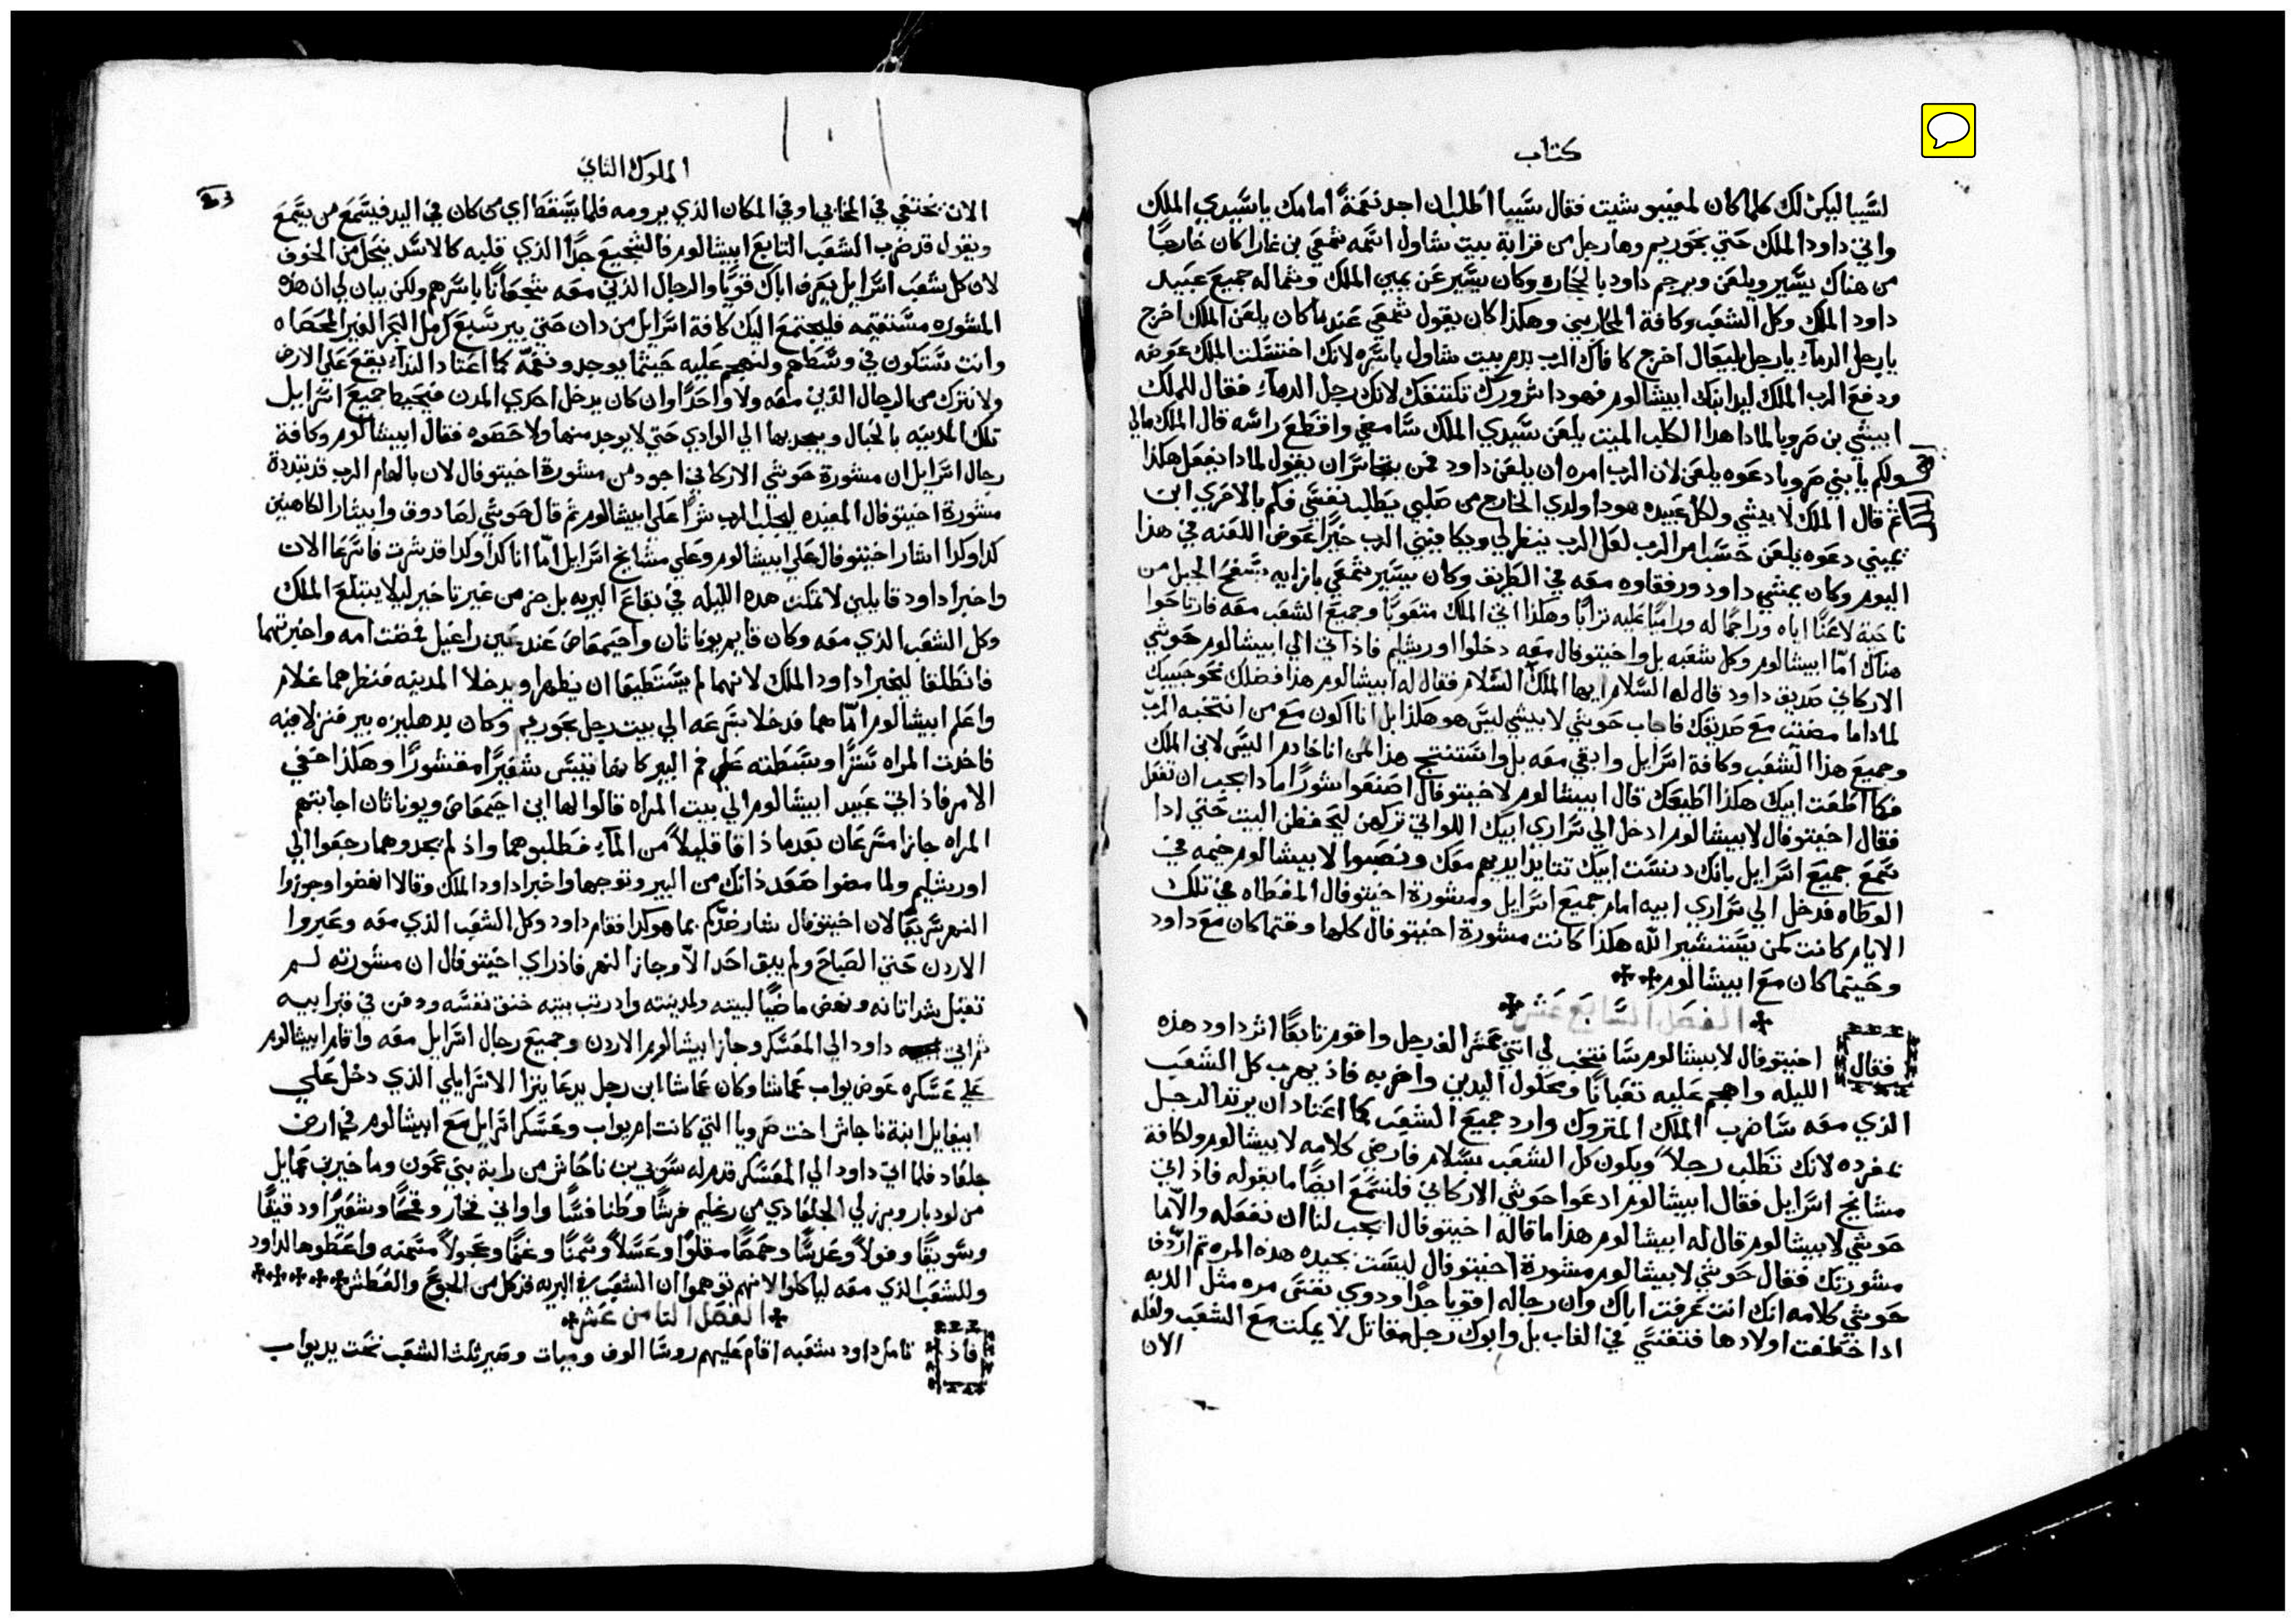 كتاب
لسيبا ليكن لك كلما كان لمفيبوشيت فقال سيبا اطلب ان اجد نعمةً امامك يا سيدي الملك
واتي داود الملك حتي بحوريم وها رجل من قرابة بيت شاول اسمه شمعي بن غارا كان خارجًا
من هناك يسير ويلعن ويرجم داود بالحجاره وكان يسير عن يمين الملك وشماله جميع عبيد
داود الملك وكل الشعب وكافة المحاربين وهكذا كان يقول شمعي عندما كان يلعن الملك اخرج
يا رجل الدماء يا رجل بليعال اخرج كافاك الرب بدم بيت شاول باسره لانك اختسلت الملك عوضه
ودفع الرب الملك ليد ابنك ابيشالوم فهودا شرورك تكتنفك لانك رجل الدماء فقال للملك
ابيشي بن صرويا لماذا هدا الكلب الميت يلعن سيدي الملك سامضي واقطع راسه قال الملك مالي
ولكم يا بني صرويا دعوه يلعن لان الرب امره ان يلعن داود فمن يتجاسر ان يقول لمادا يفعل هكذا
ثم قال الملك لابيشي ولكل عبيده هودا ولدي الخارج من صلبي يطلب نفسي فكم بالاحري ابن
يميني دعوه يلعن حسب امر الرب لعل الرب ينظر لي ويكافيني الرب خيرًا عوض اللعنه في هذا
اليوم وكان يمشي داود ورفقاوه معه في الطريق وكان يسير شمعي بازايه بسفح الجبل من
ناحية لاعنًا اياه وراجمًا له وراميًا عليه ترابًا وهكذا اتي الملك متعوبًا وجميع الشعب معه فارتاحوا
هناك امّا ابيشالوم وكل شعبه بل واخيتوفال معه دخلوا اورشليم فاذ اتي الي ابيشالوم حوشي
الاركاني صديق داود قال له السلام ايها الملك السلام فقال له ابيشالوم هذا فضلك نحو حبيبك
لمادا ما مضيت مع صديقك فاجاب حوشي لابيشي ليس هو هكذا بل انا اكون مع من انتخبه الرب
وجميع هذا الشعب وكافة اسرايل وابقي معه بل واستنتج هذا لمن انا خادم اليس لابن الملك
فكما اطعت ابيك هكذا اطيعك قال ابيشالوم لاخيتوفال اصنعوا شورًا مادا يجب ان تفعل
فقال اخيتوفال لابيشالوم ادخل الي سراري ابيك اللواتي تركهن ليحفظن البيت حتي ادا
سمع جميع اسرايل بانك دنست ابيك تتايد ايديهم معك ونصبوا لابيشالوم خيمه في
الوطاه فدخل الي سراري ابيه امام جميع اسرايل ومشورة اخيتوفال المعطاه في تلك
الايام كانت كمن يستشير الله هكذا كانت مشورة اخيتوفال كلها وقتما كان مع داود
وحيتما كان مع ابيشالوم
الفصل السابع عشر
فقال اخيتوفال لابيشالوم سانتخب لي اتني عشر الف رجل واقوم تابعًا اثر داود هذه
الليله واهجم عليه تعبانًا ومحلول اليدين واضربه فاذ يهرب كل الشعب
الذي معه ساضرب الملك المتروك وارد جميع الشعب كما اعتاد ان يرتد الرجل
بمفرده لانك تطلب رجلاً ويكون كل الشعب بسلام فارضي كلامه لابيشالوم ولكافة
مشايخ اسرايل فقال ابيشالوم ادعوا حوشي الاركاني فلنسمع ايضًا ما يقوله فاذ اتي
حوشي لابيشالوم قال له ابيشالوم هذا ما قاله اخيتوفال ايجب لنا ان نفعله والّا ما
مشورتك فقال حوشي لابيشالوم مشورة اخيتوفال ليست بجيده هذه المره تم اردف
حوشي كلامه انك انت عرفت اباك وان رجاله اقويا جدًا ودوي نفس مره مثل الدبه
ادا خطفت اولادها فتفتسي في الغاب بل وابوك رجل مقاتل لا يمكت مع الشعب ولعله
الان
الملوك الثاني
الان يختفي في المخابي او في المكان الذي يرومه فلما يسقط اي من كان في اليد فيسمع من يسمع
ويقول قد ضرب الشعب التابع ابيشالوم فالشجيع جدًا الذي قلبه كالاسد ينحل من الخوف
لان كل شعب اسرايل يعرف اباك قويًا والرجال الذين معه شجعانًا باسرهم ولكن يبان لي ان هذه
المشوره مستقيمه فليجتمع اليك كافة اسرايل من دان حتي بير سبع كرمل البحر الغير المحصاه
وانت ستكون في وسطهم ولنهجم عليه حيثما يوجد ونعمّه كما اعتاد النداء يقع علي الارض
ولا نترك من الرجال الذين معه ولا واحدًا وان كان يدخل احدي المدن فيحيط جميع اسرايل
تلك المدينه بالحبال ويجدبها الي الوادي حتي لا يوجد منها ولا حصوه فقال ابيشالوم وكافة
رجال اسرايل ان مشورة حوشي الاركاني اجود من مشورة اخيتوفال لان بالهام الرب قد تبددة
مشورة اخيتوفال المفيده ليجلب الرب شرًا علي ابيشالوم ثم قال حوشي لصادوق وابيثار الكاهنين
كدا وكدا اشار اخيتوفال علي ابيشالوم وعلي مشايخ اسرايل امّا انا كدا وكدا قد شرت فاسرعا الان
واخبرا داود قايلين لا تمكت هده الليله في بقاع البريه بل جز من غير تاخير ليلا يبتلع الملك
وكل الشعب الذي معه وكان قايم يوناثان واحيمعاص عند عين راغيل فمضت امه واخبرتهما
فانطلقا ليخبرا داود الملك لانهما لم يستطيعا ان يظهرا ويدخلا المدينه فنظرهما غلام
واعلم ابيشالوم امّا هما فدخلا بسرعه الي بيت رجل بحوريم وكان بدهليزه بير فنزلا فيه
فاخدت المراه سترًا وبسطته علي فم البير كانها تيبس شعيرًا مقشورًا وهكذا خفي
الامر فاذ اتي عبيد ابيشالوم الي بيت المراه قالوا لها اين احيمعاص ويوناثان اجابتهم
المراه جازا مسرعان بعدما ذاقا قليلاً من الماء فطلبوهما واذ لم يجدوهما رجعوا الي
اورشليم ولما مضوا صعد ذانك من البير وتوجها واخبرا داود الملك وقالا انهضوا وجوزوا
النهر سريعًا لان اخيتوفال شار ضدكم بما هو كدا فقام داود وكل الشعب الذي معه وعبروا
الاردن حتي الصباح ولم يبق احد الّا وجاز النهر فاذ راي اخيتوفال ان مشورته لم
تقبل شد اتانه ونهض ماضيًا لبيته ولمدينته واد رتب بيته خنق نفسه ودفن في قبر ابيه
ثم اتي داود الي المعسكر وجاز ابيشالوم الاردن وجميع رجال اسرايل معه واقام ابيشالوم
علي عسكره عوض يواب عماشا وكان عماشا ابن رجل يدعا يترا الاسرايلي الذي دخل علي
ابيغايل ابنة ناحاش اخت صرويا التي كانت ام يواب وعسكر اسرايل مع ابيشالوم في ارض
جلعاد فلما اتي داود الي المعسكر قدم له سوبي بن ناحاش من رابة بني عمون وماخير بن عمايل
من لودبار وبرزلي الجلعادي من رغليم فرشًا وطنافسًا واواني فخار وقمحًا وشعيرًا ودقيقًا
وسويقًا وفولاً وعدسًا وحمصًا مقلوًا وعسلاً وسمنًا وغنمًا وعجولاً مسمنه واعطوها لداود
وللشعب الذي معه لياكلوا لانهم توهموا ان الشعب في البريه قد كل من الجوع والعطش
الفصل التامن عشر
فاذ تامل داود شعبه اقام عليهم روسًا الوف وميات وصير ثلث الشعب تحت يد يواب